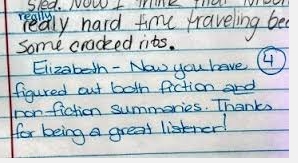 sled. Now I think that
really
really hard time traveling bec
Some cracked ribs.
Elizabeth - Now you have 4
figured out both fiction and
non-fiction summaries. Thanks
for being a great listener!